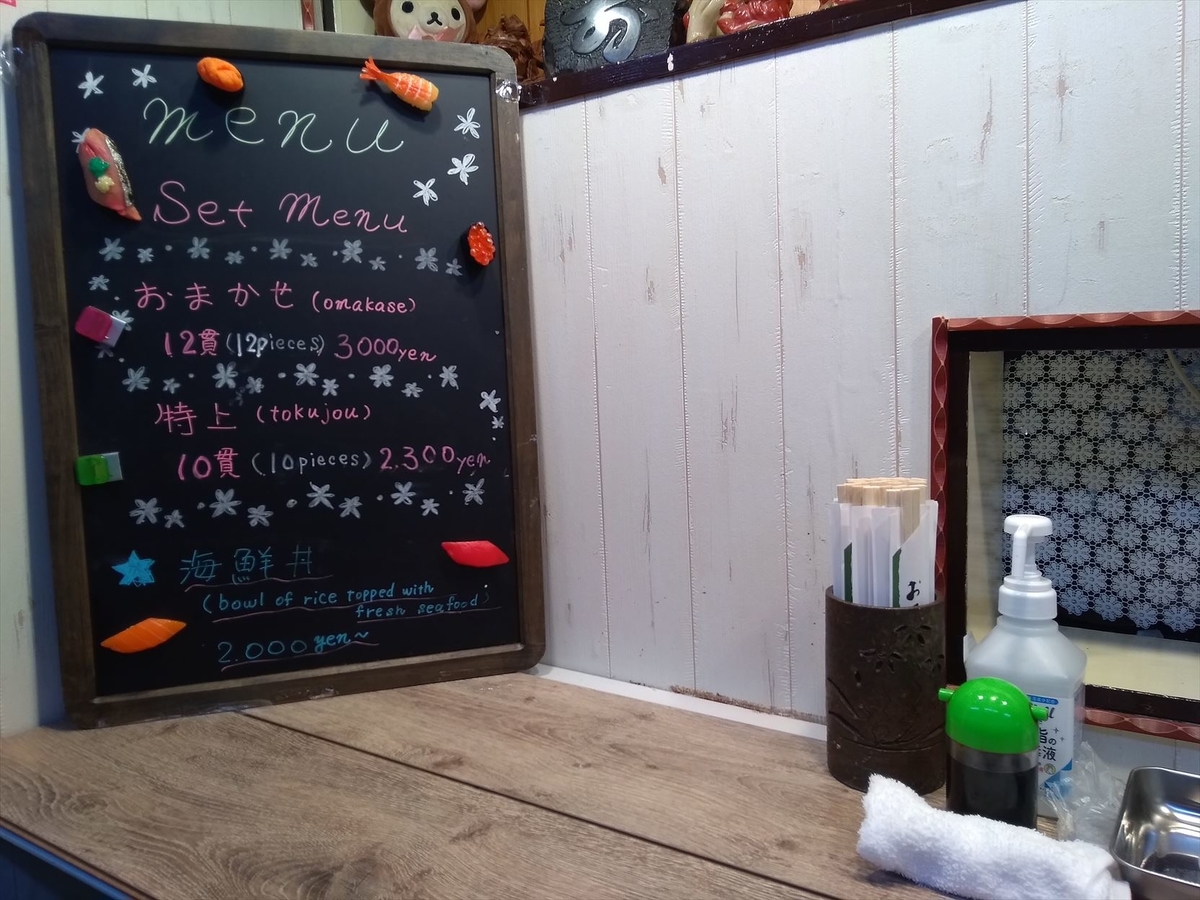 menu
Set Menu
おまかせ (omakase)
12貫 (12pieces) 3000yen
特上 (tokujou)
10貫 (10pieces) 2.300yen
海鮮丼
(bowl of rice topped with
fresh seafood)
2.000yen~
お